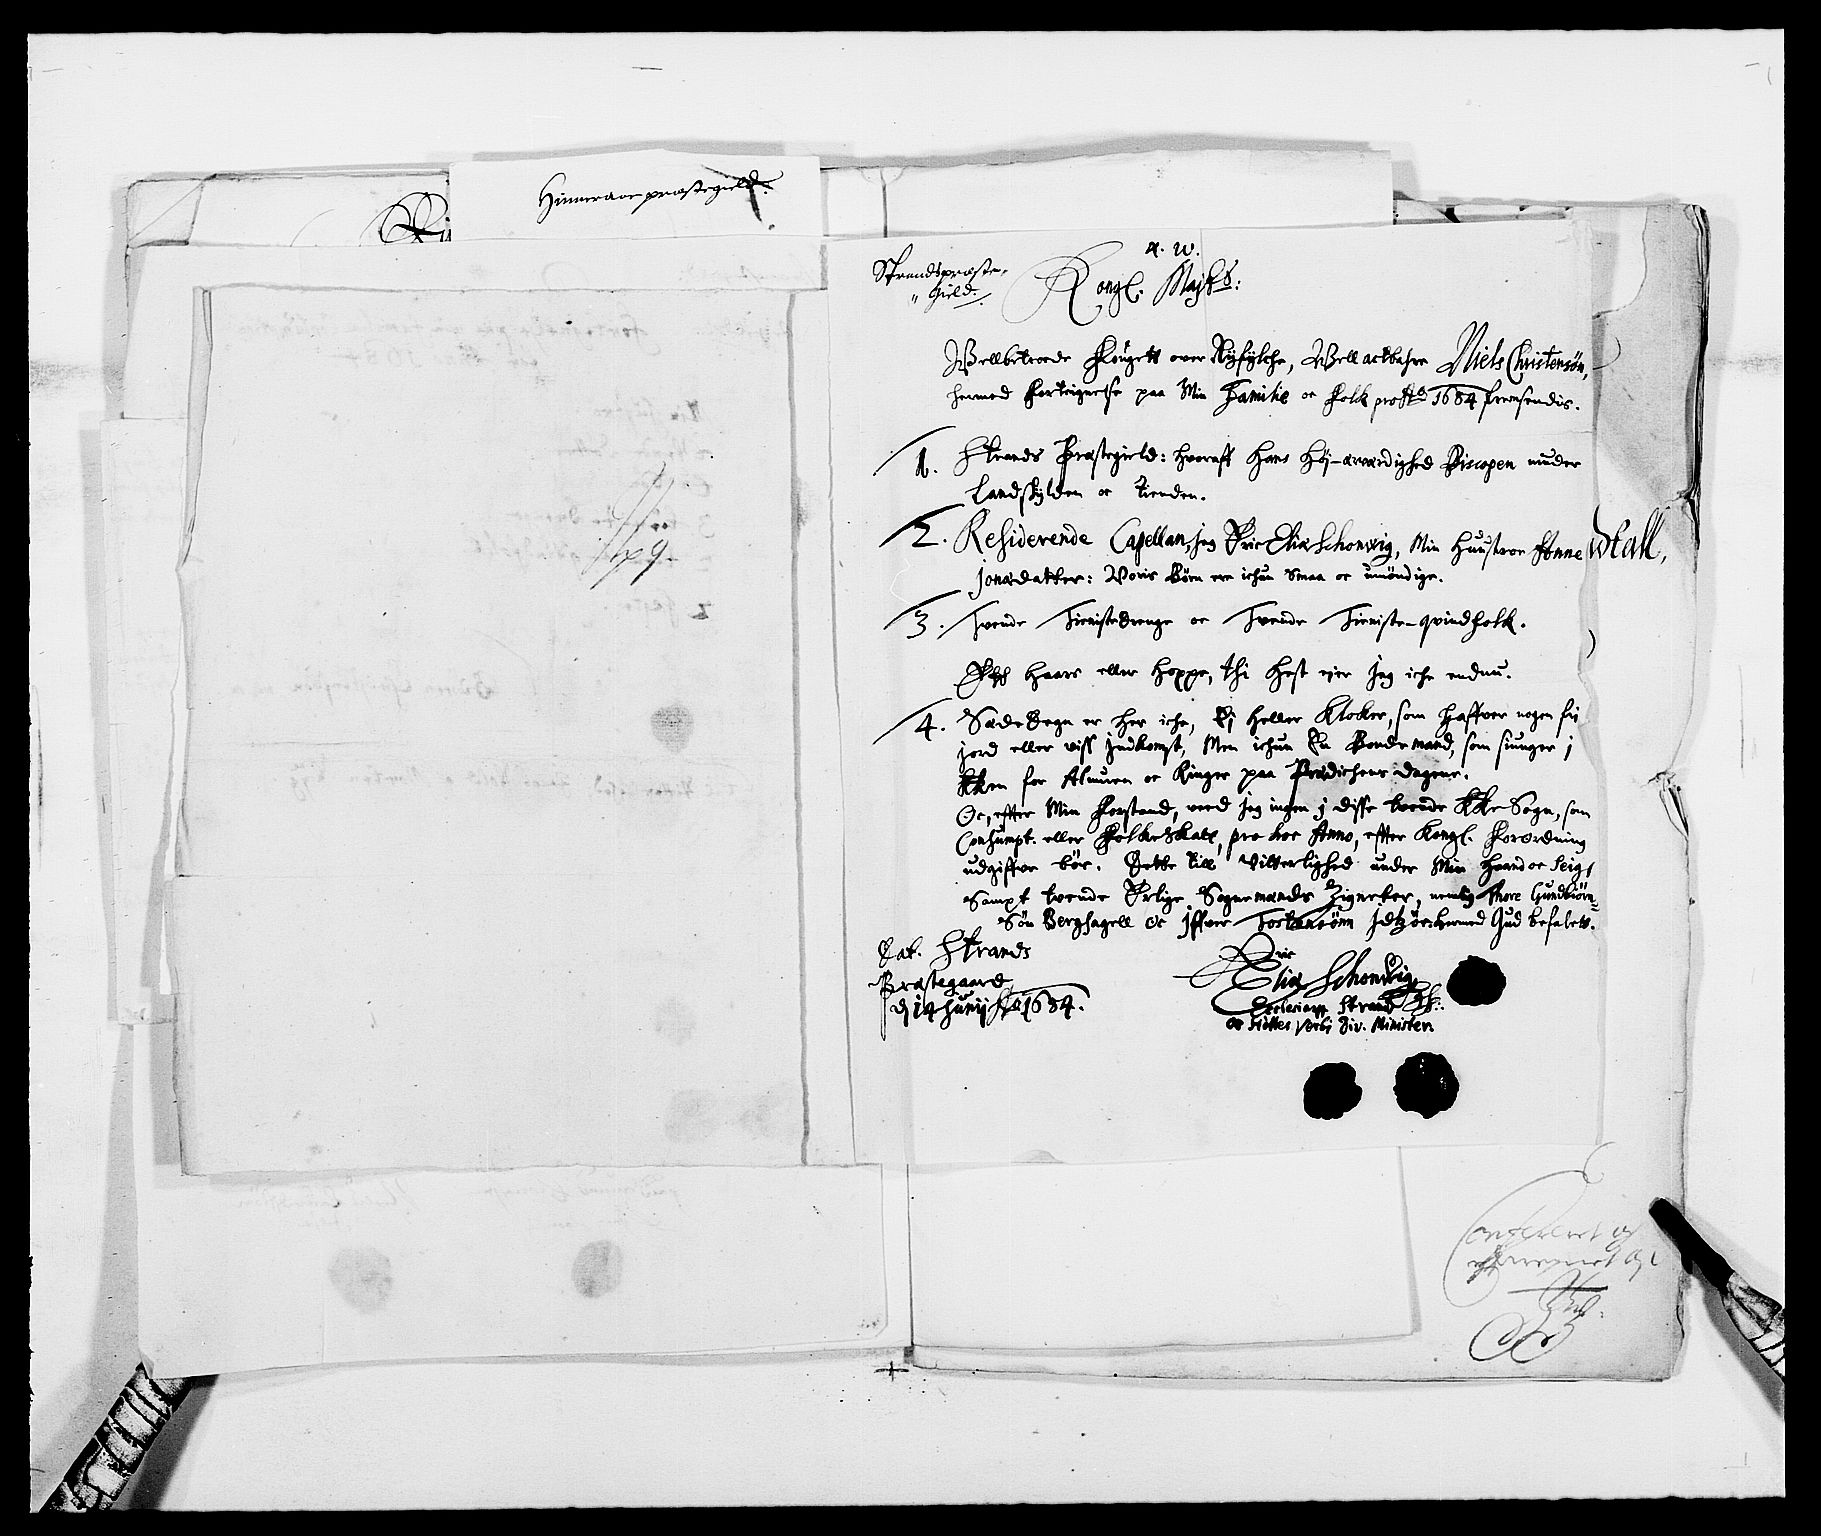 Hinneraae præstegield.
A. W.
Strandspræste-
gield.
Kongl. Maÿts:
Wellbetroede Fougett over Rÿfÿlche, Well actbahre Niels Christensøn,
hermed Forteignelse paa Min Familie oc Folk pro Ao 1684 fremsendis.
1. Strands Præstegield: hvoraff Hans Höj-ærværdighed Biscopen nÿder
Landskÿlden oc Tienden.
2. Residerende Capellan, jeg Eric Eliæ Schonvig, Min Huustroe Anne
Jonædatter: Voris Børn ere ichun Smaa oc umöndige.
3. Tvende Tienistedrenge oc Tvende Tieniste-qvindfolk.
haars eller Hoppe, thi Hest ejer jeg iche endnu.
4. Sædedegn er her iche, Ej heller Kloker, som haffver nogen frj
jord eller viss jndkomst, Men ichun En Bondemand, som siunger j
Kken for Almuen oc Ringer paa Prædichens dagene.
Oc, effter Min Forstand, veed jeg ingen j disse tvende KKe Sogn, som
Consumpt. eller Folkeskatt, pro hoc Anno, effter Kongl. Forordning
udgiffve bör. Dette till Vitterlighed under Min Haand oc Seigl
Sampt tvende Erlige Sognemænds Zigneter, nemlig Thore Gundbiörn-
Søn Berghagell oc Iffver Torstensönn hermed Gud befalett.
Dat. Strands
Præstegaard
d 14 Junij Ao 1684.
Eric
Eliæ Schonvig
Ecclesiarum Strand
Verbi Div. Minister